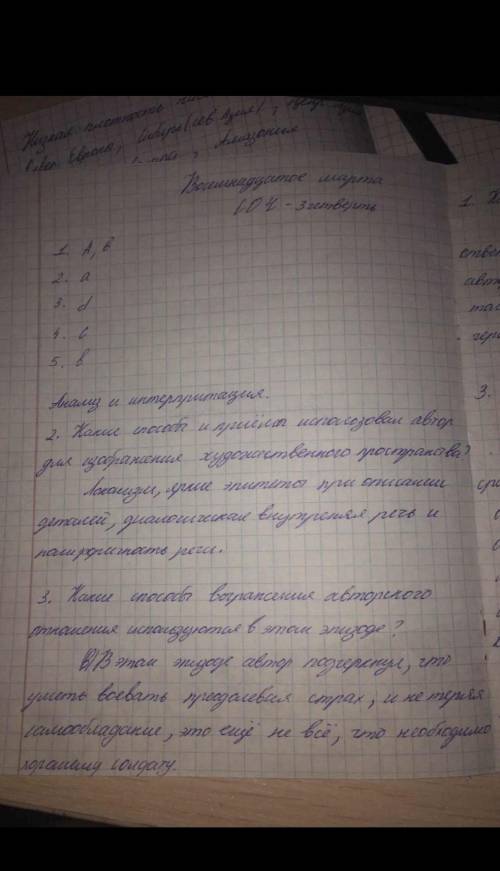 Низкая плотность
Европа, Сибирь (сев. Азия),
Амазония
Восемнадцатое марта
СОЧ - 3 четверть
1. А, в
2. а
3. d
4. с
5. в
Анализ и интерпритация.
2. Какие способы и приёмы использовал автор
для изображения художественного пространсва?
Лаконизм, яркие эпитеты при описании
деталей, диалогическая внутреняя речь и
полифоничность речи.
3. Какие способы выражения авторского
отношения используются в этом эпизоде?
В этом эпизоде автор подчеркнул, что
уметь воевать преодолевая страх, и не теряя
самообладание, это ещё не всё, что необходимо
хорошему солдату.
1.
3.